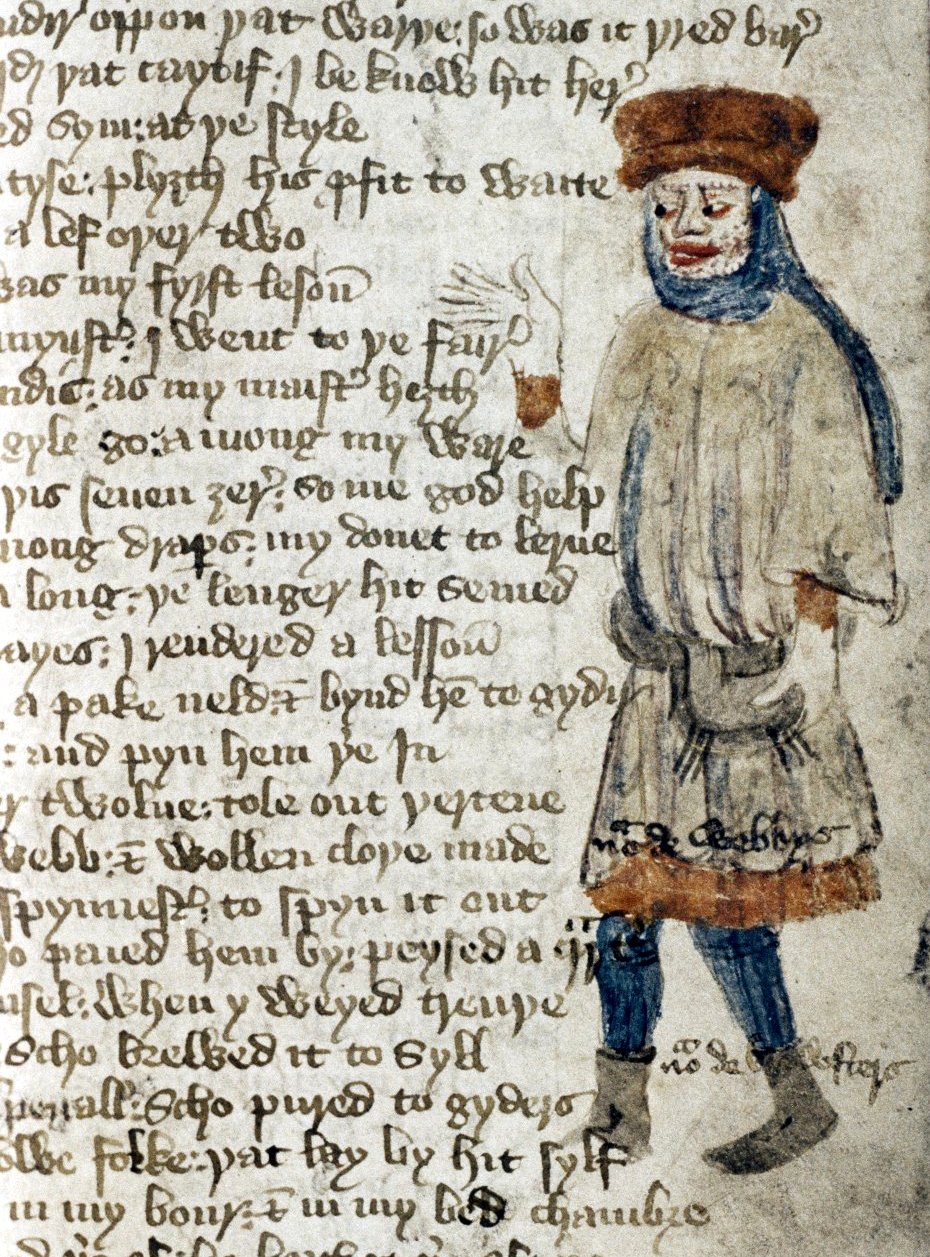 oppon þat warþe: so was it þred bar
þat caytif: I be know hit her
sym: at þe style
plyʒth his pfit to waite
a lef oþer two
was my fyrst lesoū
I went to þe fair
as my maistr heʒth
gyle go: a mong my ware
þis seuen ʒer: so me god help
mong draps: my donet to lerne
long: þe lenger hit semed
rayes: I rendered a lessoū
a pake neld: & bynd hē to gydr
: and pyn hem þe In
twolue: tole out þertene
webb: & wollen cloþe made
spynnestr: to spyn it out
paued hem by: peysed a
when y weyed treuþe
Scho brewed it to Syll
penall: Scho pured to gyders
folke: þat lay by hit sylf
in my bour: & in my bed chambre
nā de webbys
nā de